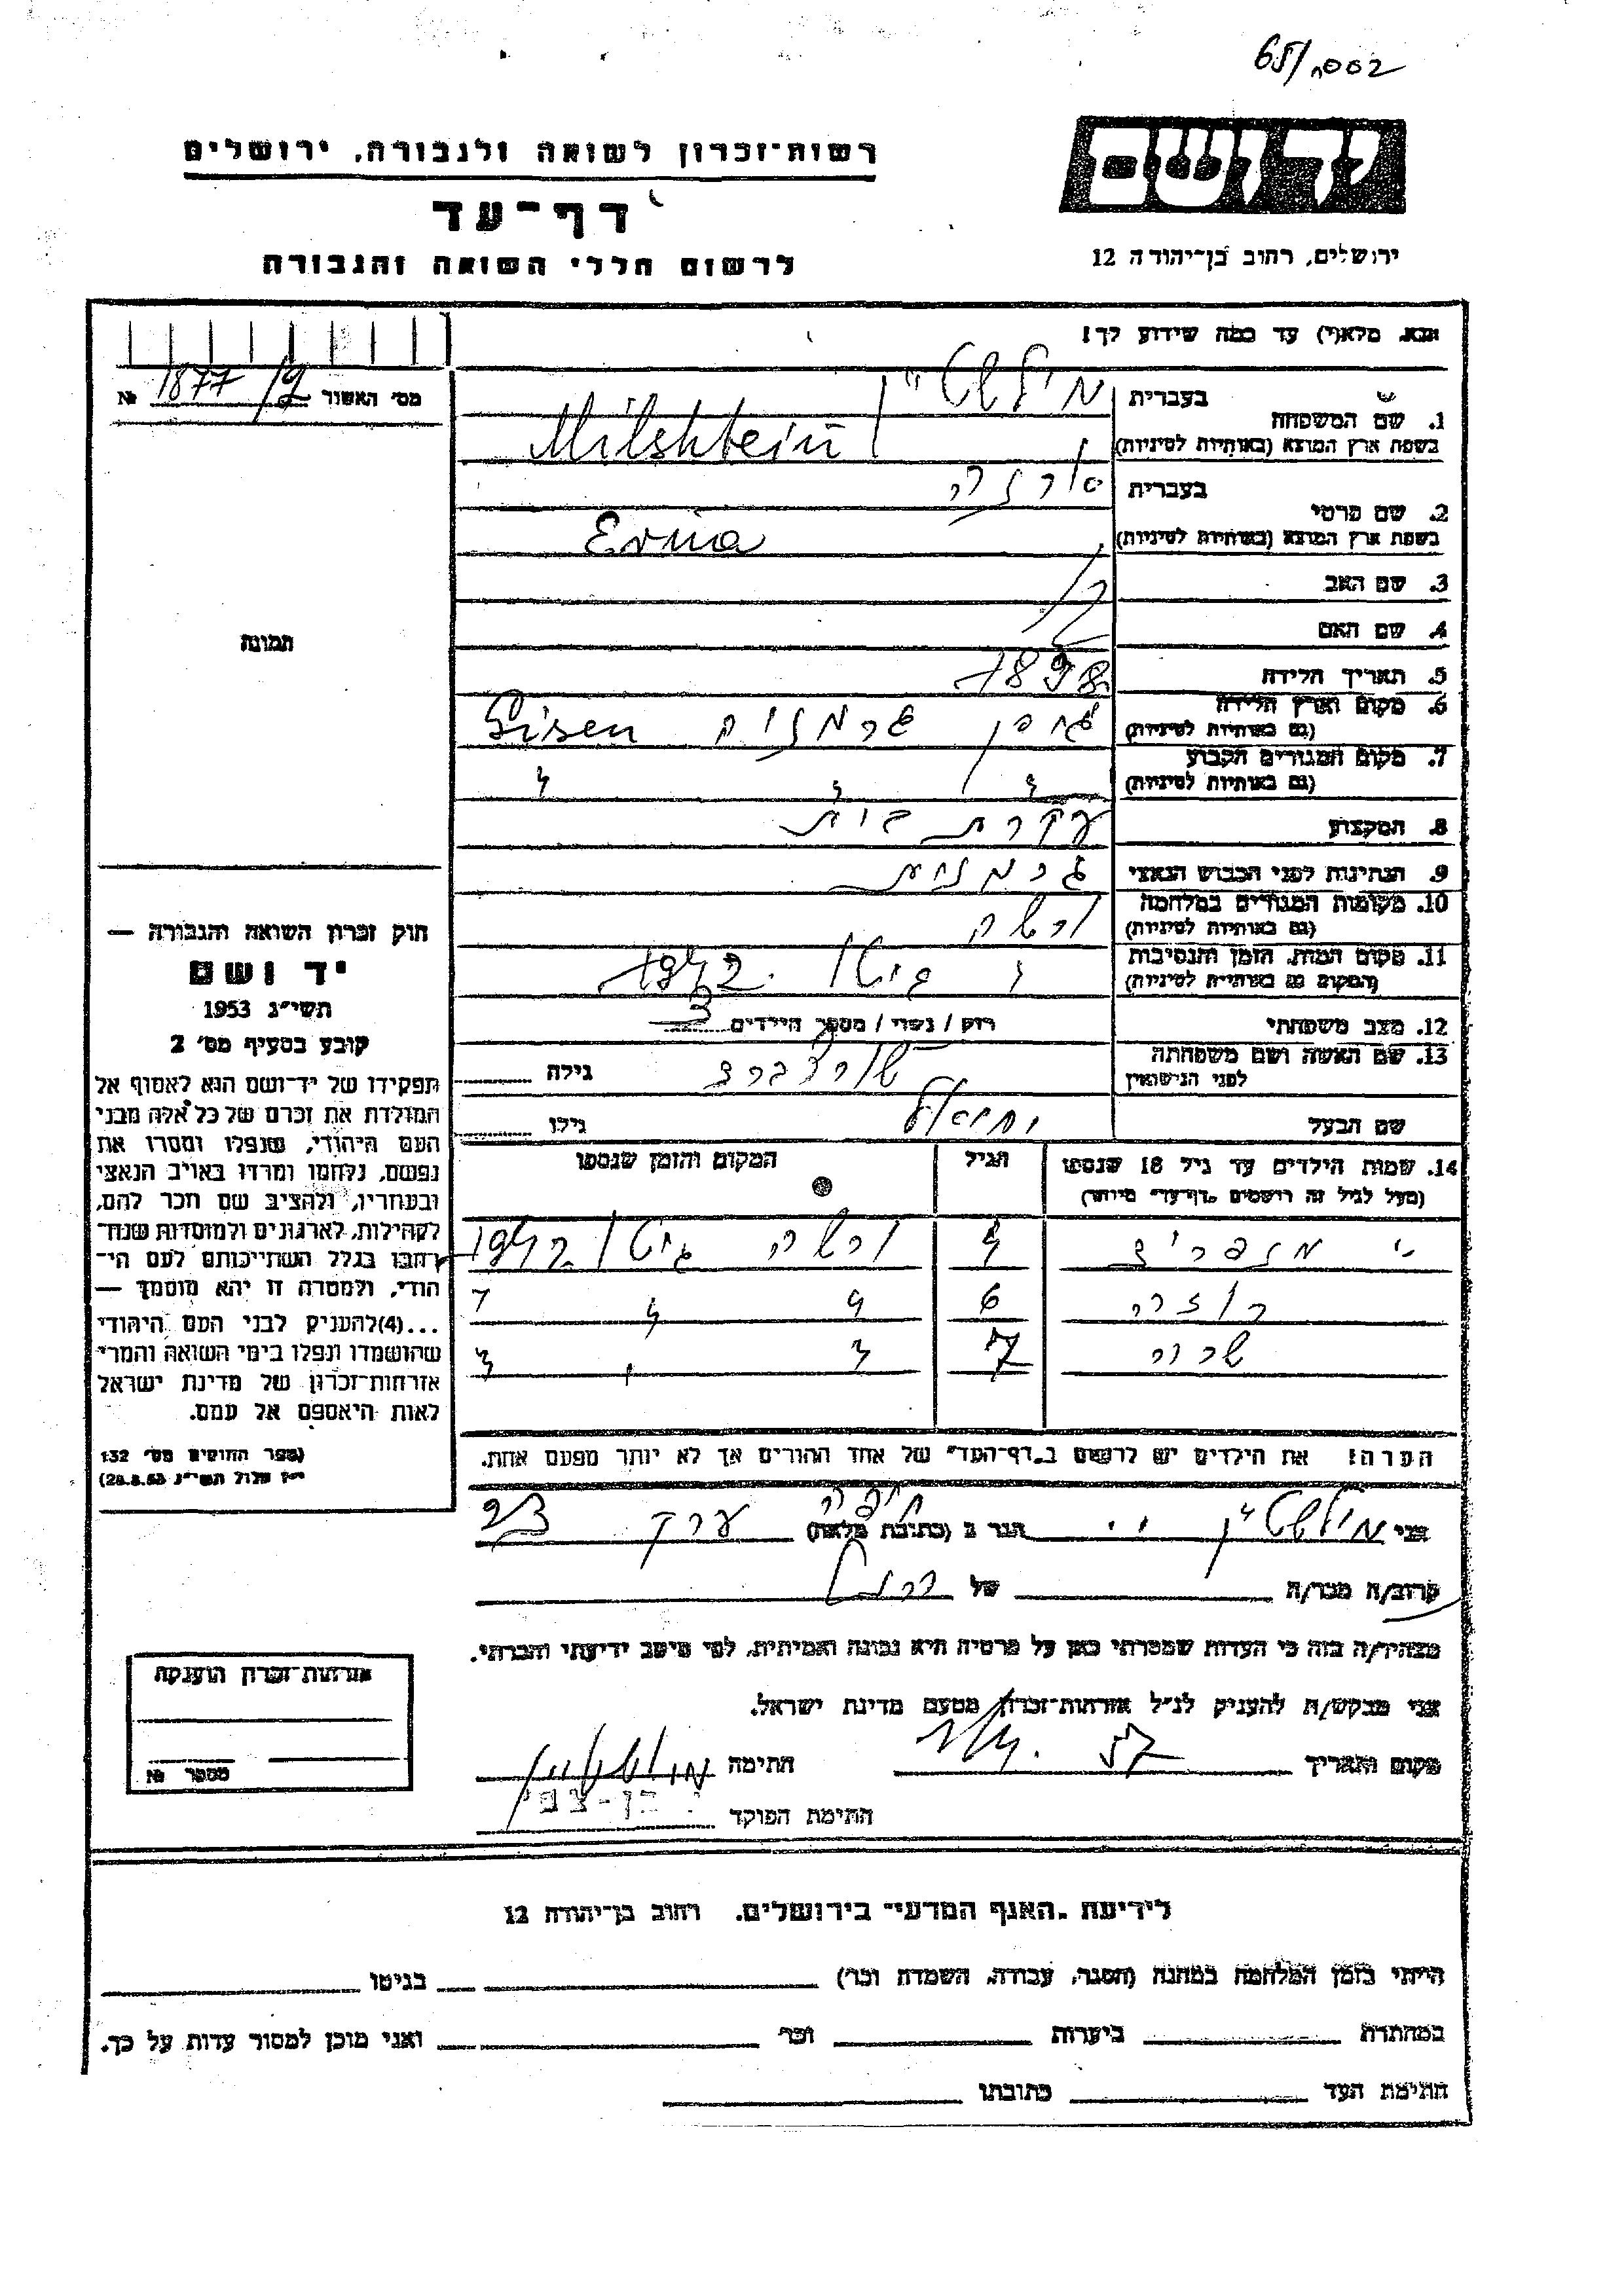 65/.0002
יד ושם
רשות־זכרון לשואה ולגבורה, ירושלים
דף־עד
לרשום חללי השואה והגבורה
ירושלים, רחוב בן־יהודה 12
נא מלא(י) עד כמה שידוע לך!
מס' האשור 1877/2 №
1. שם המשפחה בעברית מילשטיין
בשפת ארץ המוצא (באותיות לטיניות) Milshtein
2. שם פרטי בעברית ארנה
בשפת ארץ המוצא (באותיות לטיניות) Erna
3. שם האב
4. שם האם
תמונה
5. תאריך הלידה 1898
6. מקום וארץ הלידה גיסן גרמניה Gisen
(גם באותיות לטיניות)
7. מקום המגורים הקבוע " " "
(גם באותיות לטיניות)
8. המקצוע עקרת בית
9. הנתינות לפני הכבוש הנאצי גרמנית
10. מקומות המגורים במלחמה ורשה
(גם באותיות לטיניות)
11. מקום המות, הזמן והנסיבות " גיטו 1942
(המקום גם באותיות לטיניות)
12. מצב משפחתי רווק / נשוי / מספר הילדים 3
13. שם האשה ושם משפחתה גילה
לפני הנישואין
שם הבעל יחיאל גילו
14. שמות הילדים עד גיל 18 שנספו הגיל המקום והזמן שנספו
(מעל לגיל זה רושמים "דף־עד" מיוחד)
4 ורשה גיטו 1942
6 " " "
שרה 7 " " "
הערה: את הילדים יש לרשום ב"דף־העד" של אחד ההורים אך לא יותר מפעם אחת.
חוק זכרון השואה והגבורה —
יד ושם
תשי"ג 1953
קובע בסעיף מס' 2
תפקידו של יד־ושם הוא לאסוף אל
המולדת את זכרם של כל אלה מבני
העם היהודי, שנפלו ומסרו את
נפשם, נלחמו ומרדו באויב הנאצי
ובעוזריו, ולהציב שם וזכר להם,
לקהילות, לארגונים ולמוסדות שנח־
רבו בגלל השתייכותם לעם הי־
הודי, ולמטרה זו יהא מוסמך —
...(4) להעניק לבני העם היהודי
שהושמדו ונפלו בימי השואה והמרי
אזרחות־זכרון של מדינת ישראל
לאות היאספם אל עמם.
(ספר החוקים מס' 132
י"ז אלול תשי"ג 28.8.53)
אני מילשטיין י. הגר ב (כתובת מלאה) חיפה
קרוב/ה מכר/ה של
מצהיר/ה בזה כי העדות שמסרתי כאן על פרטיה היא נכונה ואמיתית, לפי מיטב ידיעתי והכרתי.
אני מבקש/ת להעניק לנ"ל אזרחות־זכרון מטעם מדינת ישראל.
מקום ותאריך חתימה מילשטיין
חתימת הפוקד
אזרחות־זכרון הוענקה
מספר №
לידיעת "האגף המדעי" בירושלים. רחוב בן־יהודה 12
הייתי בזמן המלחמה במחנה (הסגר, עבודה, השמדה וכו') בגיטו
במחתרת ביערות וכו' ואני מוכן למסור עדות על כך.
חתימת העד כתובתו